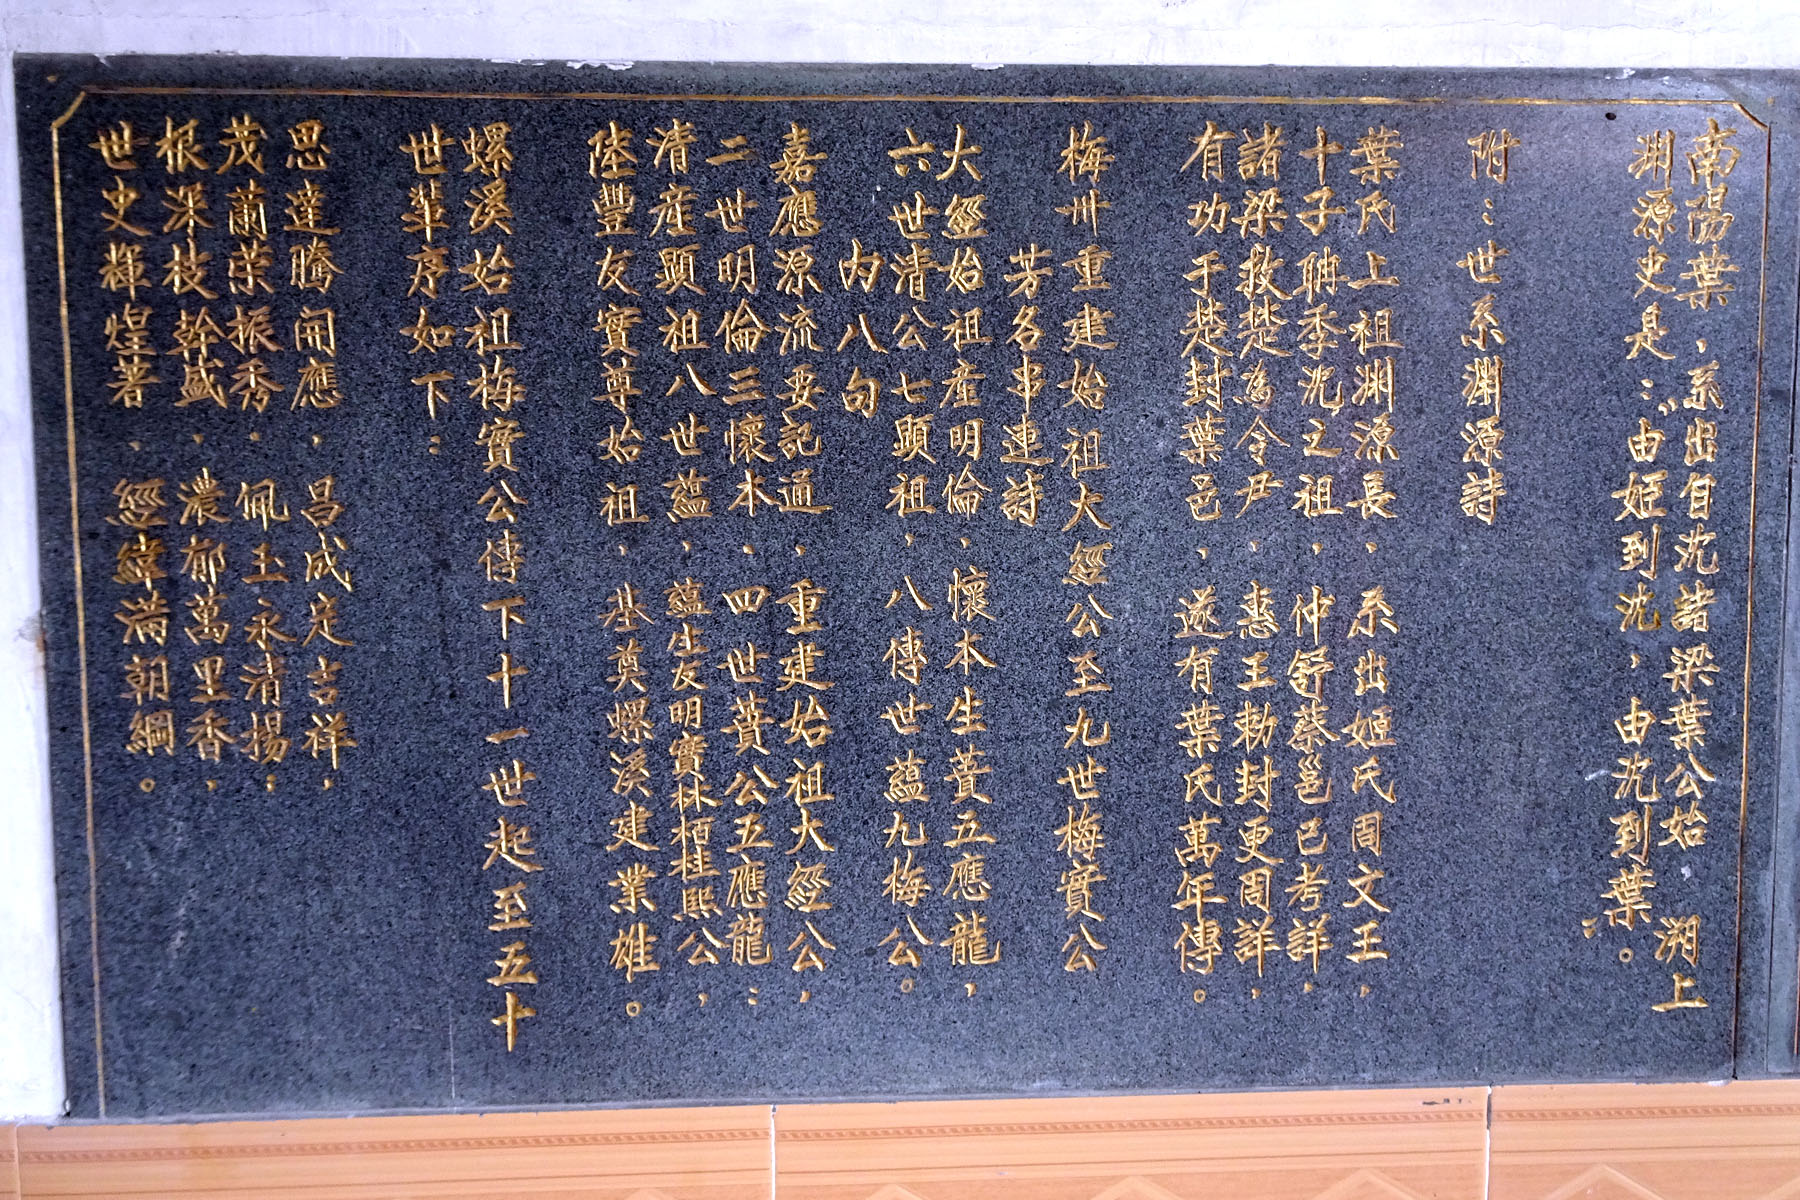 南陽葉、系出自沈諸梁葉公始 溯上
淵源史是：“由姬到沈，由沈到葉。”
附：世系淵源詩
葉氏上祖淵源長，系出姬氏周文王，
十子聃季沈之祖，仲舒蔡邕已考詳，
諸梁救楚為令尹，惠王勅封更周詳，
有功于楚封葉邑，遂有葉氏萬年傳。
梅州重建始祖大經公至九世梅實公
芳名串連詩
大經始祖產明倫，懷本生蕢五應龍，
六世清公七顯祖，八傳世蘊九梅公。
內八句
嘉應源流要記通，重建始祖大經公，
二世明倫三懷本，四世蕢公五應龍；
清產顯祖八世蘊，蘊生友明實林栢桂熙公，
陸豐友實尊始祖，基奠螺溪建業雄。
螺溪始祖梅實公傳下十一世起至五十
世輩序如下：
思達騰開應，昌成定吉祥，
茂蘭荣振秀，佩玉永清揚；
根深枝幹盛，濃郁萬里香，
世史輝煌著，經緯满朝綱。